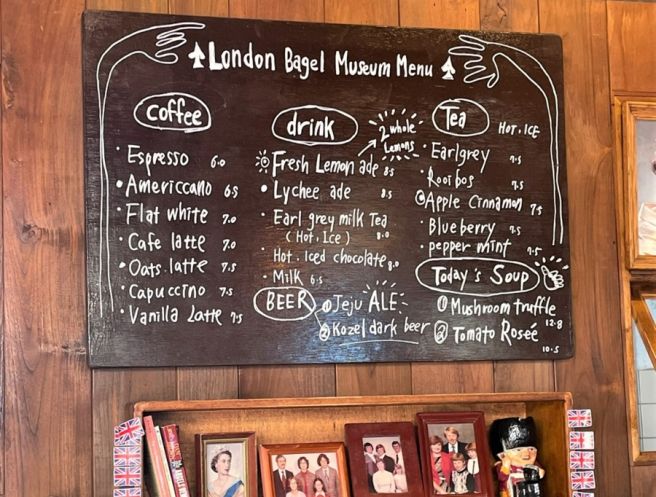 London Bagel Museum Menu
coffee
Espresso 6.0
Americcano 6.5
Flat white 7.0
Cafe latte 7.0
Oats latte 7.5
Capuccino 7.5
Vanilla Latte 7.5
drink
2 whole
Lemons
Fresh Lemon ade 8.5
Lychee ade 8.5
Earl grey milk Tea
(Hot . Ice) 8.0
Hot . Iced chocolate 8.0
Milk 6.5
BEER
① Jeju ALE
② Kozel dark beer
Tea
HOT . ICE
Earlgrey 7.5
Rooibos 7.5
Apple Cinnamon 7.5
Blueberry 7.5
pepper mint 7.5
Today's Soup
① Mushroom truffle
12.8
② Tomato Roseé
10.5